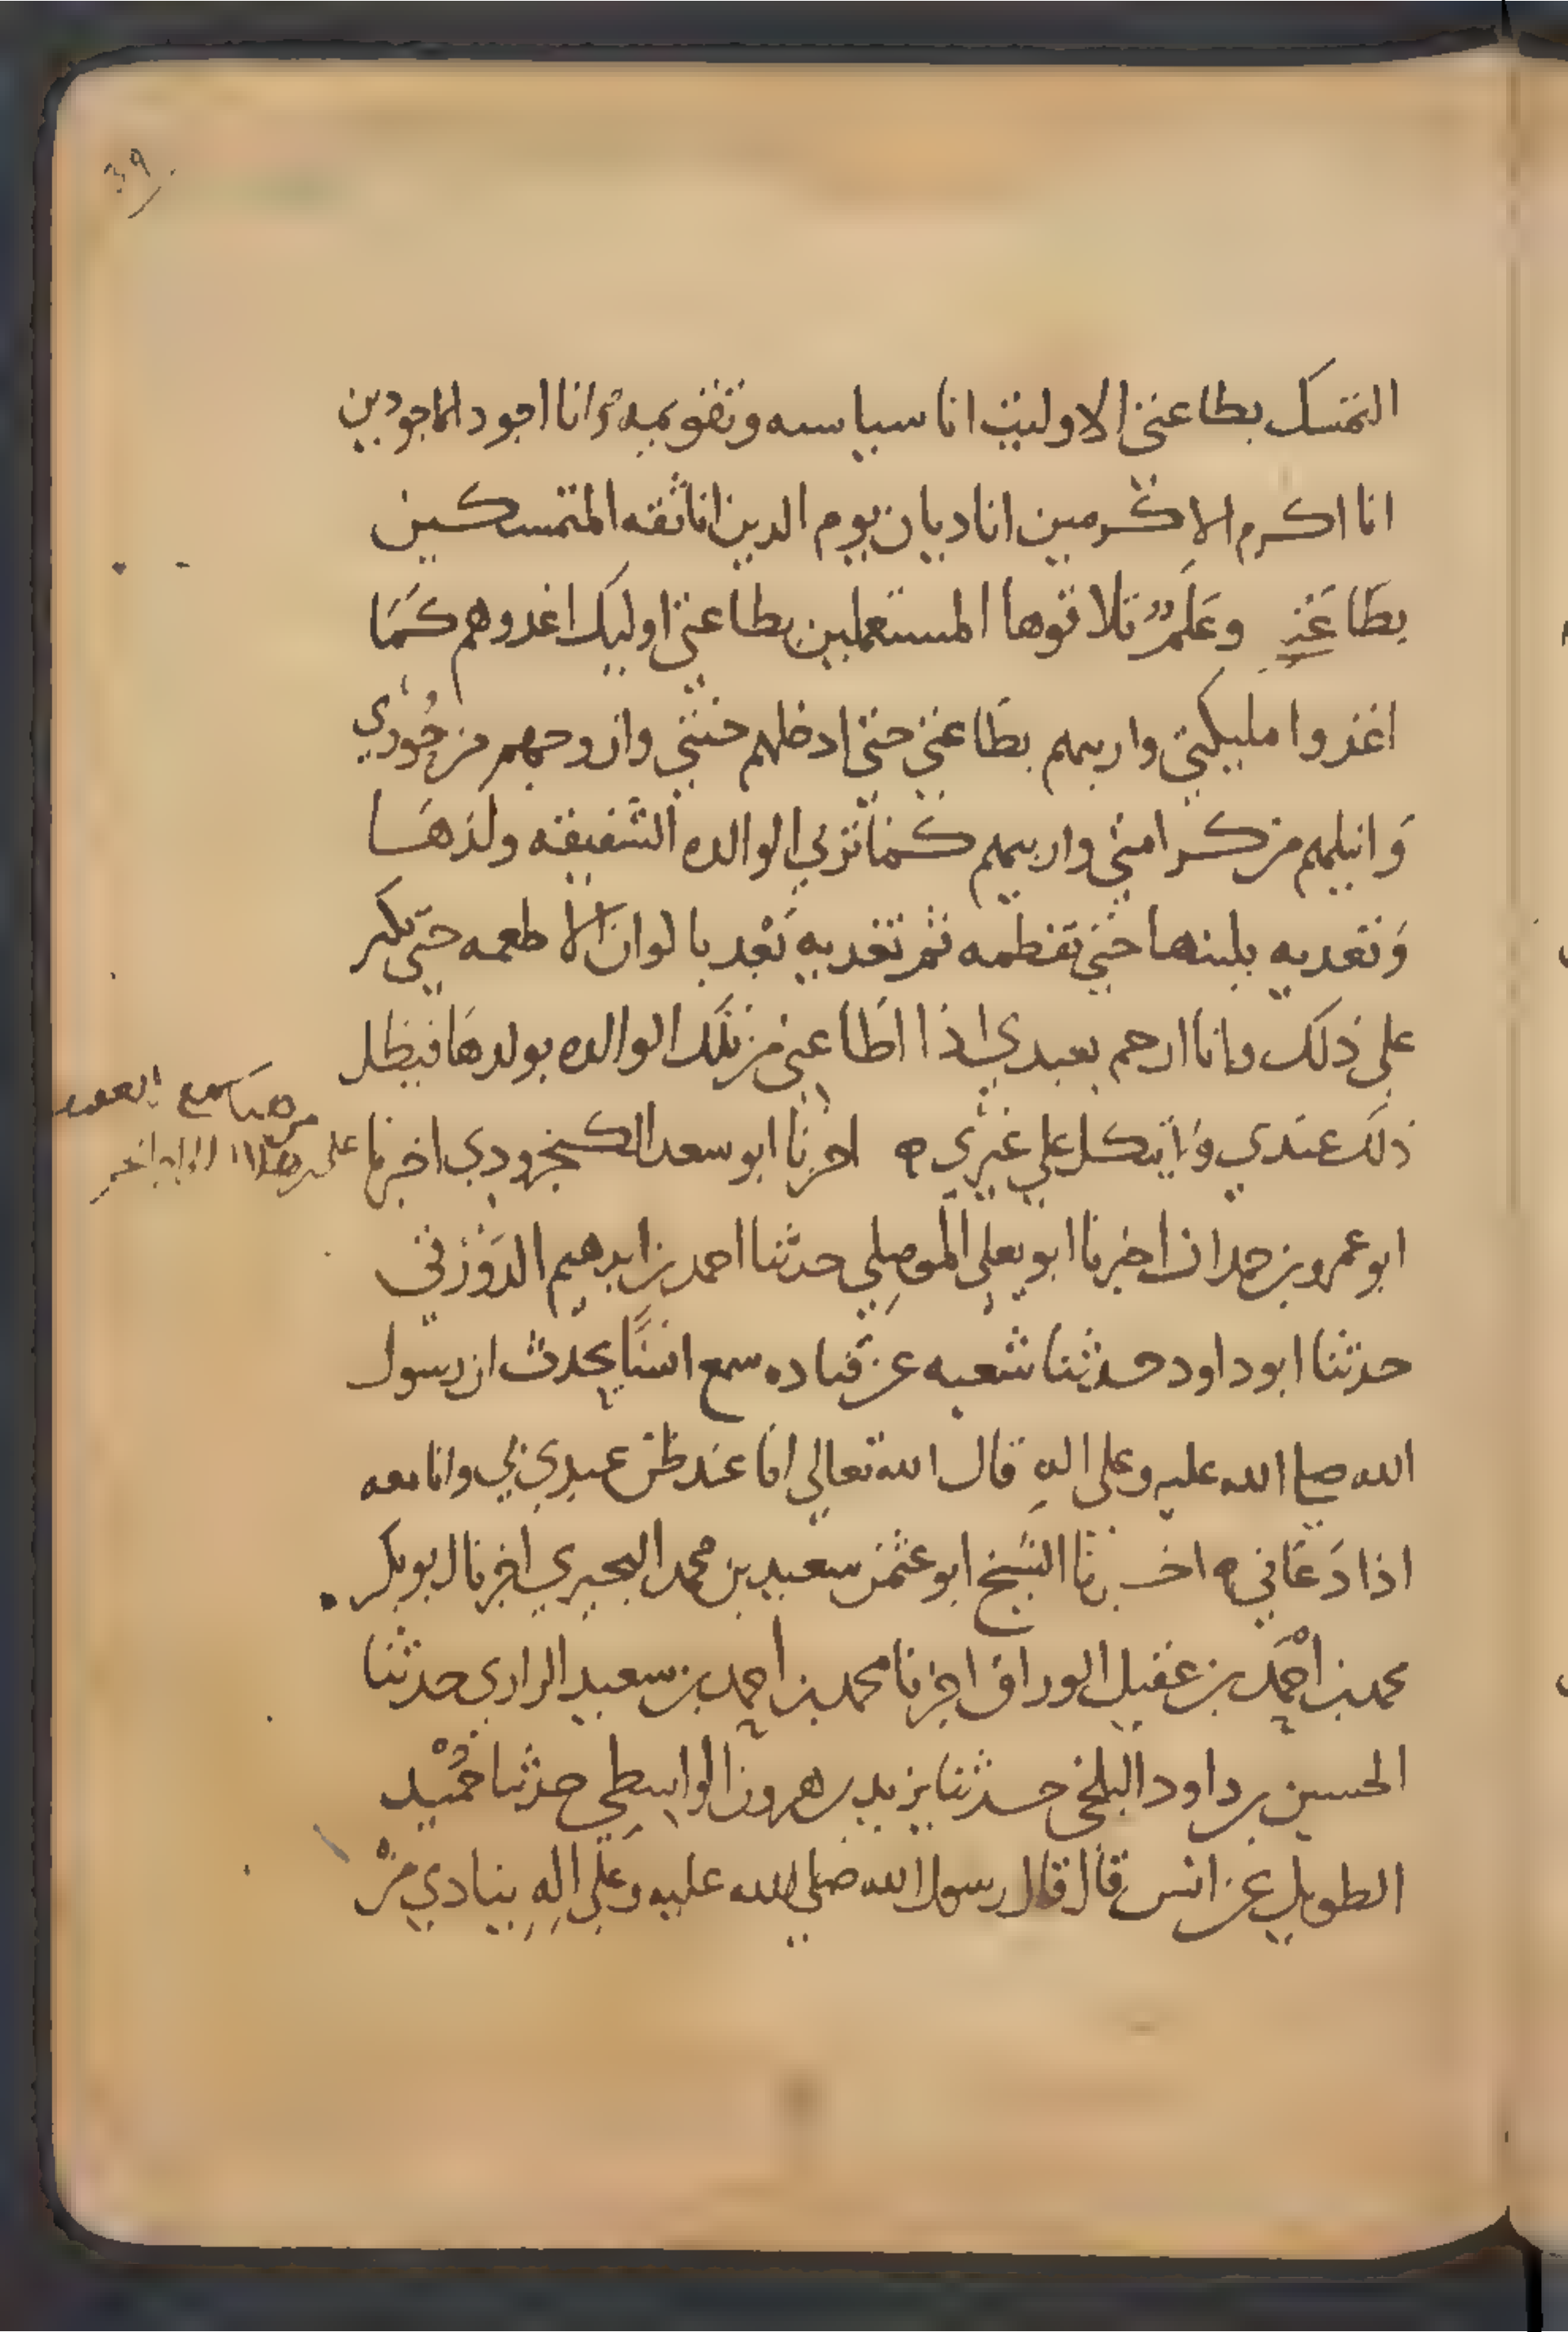 39
التمسك بطاعتي الا وليت انا سياسه وتقويمه وانا اجود الاجودين
انا اكرم الاكرمين انا ديان يوم الدين انا ثقه المتمسكين
بطاعتي وعلم تلاثوها المستعملين بطاعتي اوليك اغدوهم كما
اغذوا مليكتي واربيهم بطاعتي حتي ادخلهم جنتي وازوجهم من حوري
وانيلهم من كرامتي واربيهم كما تربي الوالده الشفيقه ولدها
وتغديه بلبنها حتي تفطمه ثم تغديه بعد بالوان الاطعمه حتي يكبر
علي ذلك وانا ارحم بعبدي اذا اطاعني من تلك الوالده بولدها فيظل
ذلك عندي ويتكل علي غيري ه اخبرنا ابو سعد الكنجرودي اخبرنا
من هنا سمع
ابو عمرو بن حمدان اخبرنا ابو يعلي الموصلي حدثنا احمد بن ابرهيم الدورقي
حدثنا ابو داود حدثنا شعبه عن قتاده سمع انسا يحدث ان رسول
الله صلي الله عليه وعلي اله قال الله تعالي انا عند ظن عبدي بي وانا معه
اذا دعاني ه اخبرنا الشيخ ابو عثمن سعيد بن محمد البحيري اخبرنا ابو بكر
محمد بن احمد بن عقيل الوراق اخبرنا محمد بن احمد بن سعيد الرازي حدثنا
الحسين بن داود البلخي حدثنا يزيد بن هرون الواسطي حدثنا حميد
الطويل عن انس قال قال رسول الله صلي الله عليه وعلي اله ينادي من